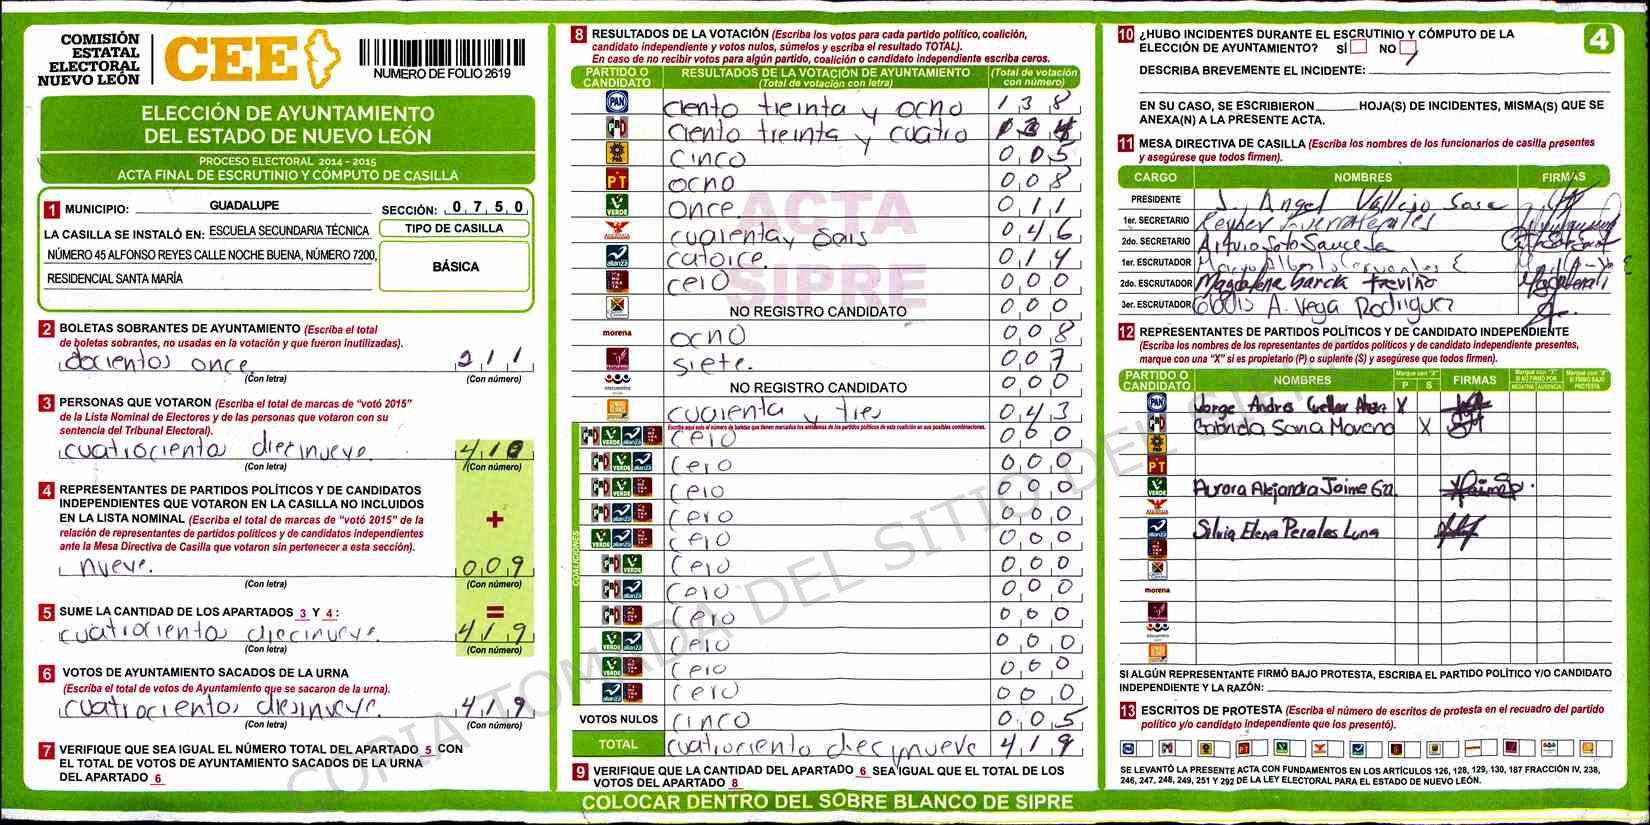 COMISIÓN
ESTATAL
ELECTORAL
NUEVO LEÓN
CEE
NUMERO DE FOLIO 2619
ELECCIÓN DE AYUNTAMIENTO
DEL ESTADO DE NUEVO LEÓN
PROCESO ELECTORAL 2014 - 2015
ACTA FINAL DE ESCRUTINIO Y CÓMPUTO DE CASILLA
1 MUNICIPIO: GUADALUPE SECCIÓN: 0 7 5 0
LA CASILLA SE INSTALÓ EN: ESCUELA SECUNDARIA TÉCNICA
NÚMERO 45 ALFONSO REYES CALLE NOCHE BUENA, NÚMERO 7200,
RESIDENCIAL SANTA MARÍA
TIPO DE CASILLA
BÁSICA
2 BOLETAS SOBRANTES DE AYUNTAMIENTO (Escriba el total
de boletas sobrantes, no usadas en la votación y que fueron inutilizadas).
docientos once 211
(Con letra) (Con número)
3 PERSONAS QUE VOTARON (Escriba el total de marcas de “votó 2015”
de la Lista Nominal de Electores y de las personas que votaron con su
sentencia del Tribunal Electoral).
cuatrocientos diecinueve.
(Con letra) (Con número)
4 REPRESENTANTES DE PARTIDOS POLÍTICOS Y DE CANDIDATOS
INDEPENDIENTES QUE VOTARON EN LA CASILLA NO INCLUIDOS
EN LA LISTA NOMINAL (Escriba el total de marcas de “votó 2015” de la
relación de representantes de partidos políticos y de candidatos independientes
ante la Mesa Directiva de Casilla que votaron sin pertenecer a esta sección).
+
nueve. 009
(Con letra) (Con número)
5 SUME LA CANTIDAD DE LOS APARTADOS 3 Y 4: =
cuatrocientos diecinueve. 419
(Con letra) (Con número)
6 VOTOS DE AYUNTAMIENTO SACADOS DE LA URNA
(Escriba el total de votos de Ayuntamiento que se sacaron de la urna).
cuatrocientos diesinueve. 419
(Con letra) (Con número)
7 VERIFIQUE QUE SEA IGUAL EL NÚMERO TOTAL DEL APARTADO 5 CON
EL TOTAL DE VOTOS DE AYUNTAMIENTO SACADOS DE LA URNA
DEL APARTADO 6
8 RESULTADOS DE LA VOTACIÓN (Escriba los votos para cada partido político, coalición,
candidato independiente y votos nulos, súmelos y escriba el resultado TOTAL).
En caso de no recibir votos para algún partido, coalición o candidato independiente escriba ceros.
PARTIDO O CANDIDATO RESULTADOS DE LA VOTACIÓN DE AYUNTAMIENTO (Total de votación con letra) (Total de votación con número)
PAN ciento treinta y ocho 138
PRI ciento treinta y cuatro 134
PRD cinco 005
PT ocho 008
VERDE once 011
cuarenta y seis 046
alianza catorce. 014
cero 000
NO REGISTRO CANDIDATO 000
morena ocho 008
siete. 007
encuentro NO REGISTRO CANDIDATO 000
cuarenta y tres 043
Escriba aquí solo el número de boletas que tienen marcados los emblemas de los partidos políticos de esta coalición en sus posibles combinaciones.
COALICIONES
PRI VERDE alianza cero 000
VERDE alianza cero 000
PRI VERDE cero 000
PRI alianza cero 000
VERDE alianza cero 000
PRI VERDE cero 000
PRI alianza cero 000
PRI cero 000
VERDE alianza cero 000
VERDE cero 000
alianza cero 000
VOTOS NULOS cinco 005
TOTAL cuatrociento diecinueve 419
9 VERIFIQUE QUE LA CANTIDAD DEL APARTADO 6 SEA IGUAL QUE EL TOTAL DE LOS
VOTOS DEL APARTADO 8
ACTA
SIPRE
COLOCAR DENTRO DEL SOBRE BLANCO DE SIPRE
4
10 ¿HUBO INCIDENTES DURANTE EL ESCRUTINIO Y CÓMPUTO DE LA
ELECCIÓN DE AYUNTAMIENTO? SÍ NO
DESCRIBA BREVEMENTE EL INCIDENTE:
EN SU CASO, SE ESCRIBIERON HOJA(S) DE INCIDENTES, MISMA(S) QUE SE
ANEXA(N) A LA PRESENTE ACTA.
11 MESA DIRECTIVA DE CASILLA (Escriba los nombres de los funcionarios de casilla presentes
y asegúrese que todos firmen).
CARGO NOMBRES FIRMAS
PRESIDENTE J. Angel Vallejo Sosa
1er. SECRETARIO
2do. SECRETARIO Arturo Soto Sauceda
1er. ESCRUTADOR
2do. ESCRUTADOR Magdalena García Treviño
3er. ESCRUTADOR A. Vega Rodriguez
12 REPRESENTANTES DE PARTIDOS POLÍTICOS Y DE CANDIDATO INDEPENDIENTE
(Escriba los nombres de los representantes de partidos políticos y de candidato independiente presentes,
marque con una “X” si es propietario (P) o suplente (S) y asegúrese que todos firmen).
PARTIDO O CANDIDATO NOMBRES Marque con “X” P S FIRMAS Marque con “X” SI NO FIRMÓ POR NEGATIVA AUSENCIA Marque con “X” SI FIRMÓ BAJO PROTESTA
PAN Jorge Andres Cuellar X
PRI Gabriela Soria Moreno X
PRD
PT
VERDE Aurora Alejandra Jaime Gzz.
alianza Silvia Elena Perales Luna
morena
encuentro
SI ALGÚN REPRESENTANTE FIRMÓ BAJO PROTESTA, ESCRIBA EL PARTIDO POLÍTICO Y/O CANDIDATO
INDEPENDIENTE Y LA RAZÓN:
13 ESCRITOS DE PROTESTA (Escriba el número de escritos de protesta en el recuadro del partido
político y/o candidato independiente que los presentó).
SE LEVANTÓ LA PRESENTE ACTA CON FUNDAMENTOS EN LOS ARTÍCULOS 126, 128, 129, 130, 187 FRACCIÓN IV, 238,
246, 247, 248, 249, 251 Y 292 DE LA LEY ELECTORAL PARA EL ESTADO DE NUEVO LEÓN.
COPIA TOMADA DEL SITIO DEL SIPRE